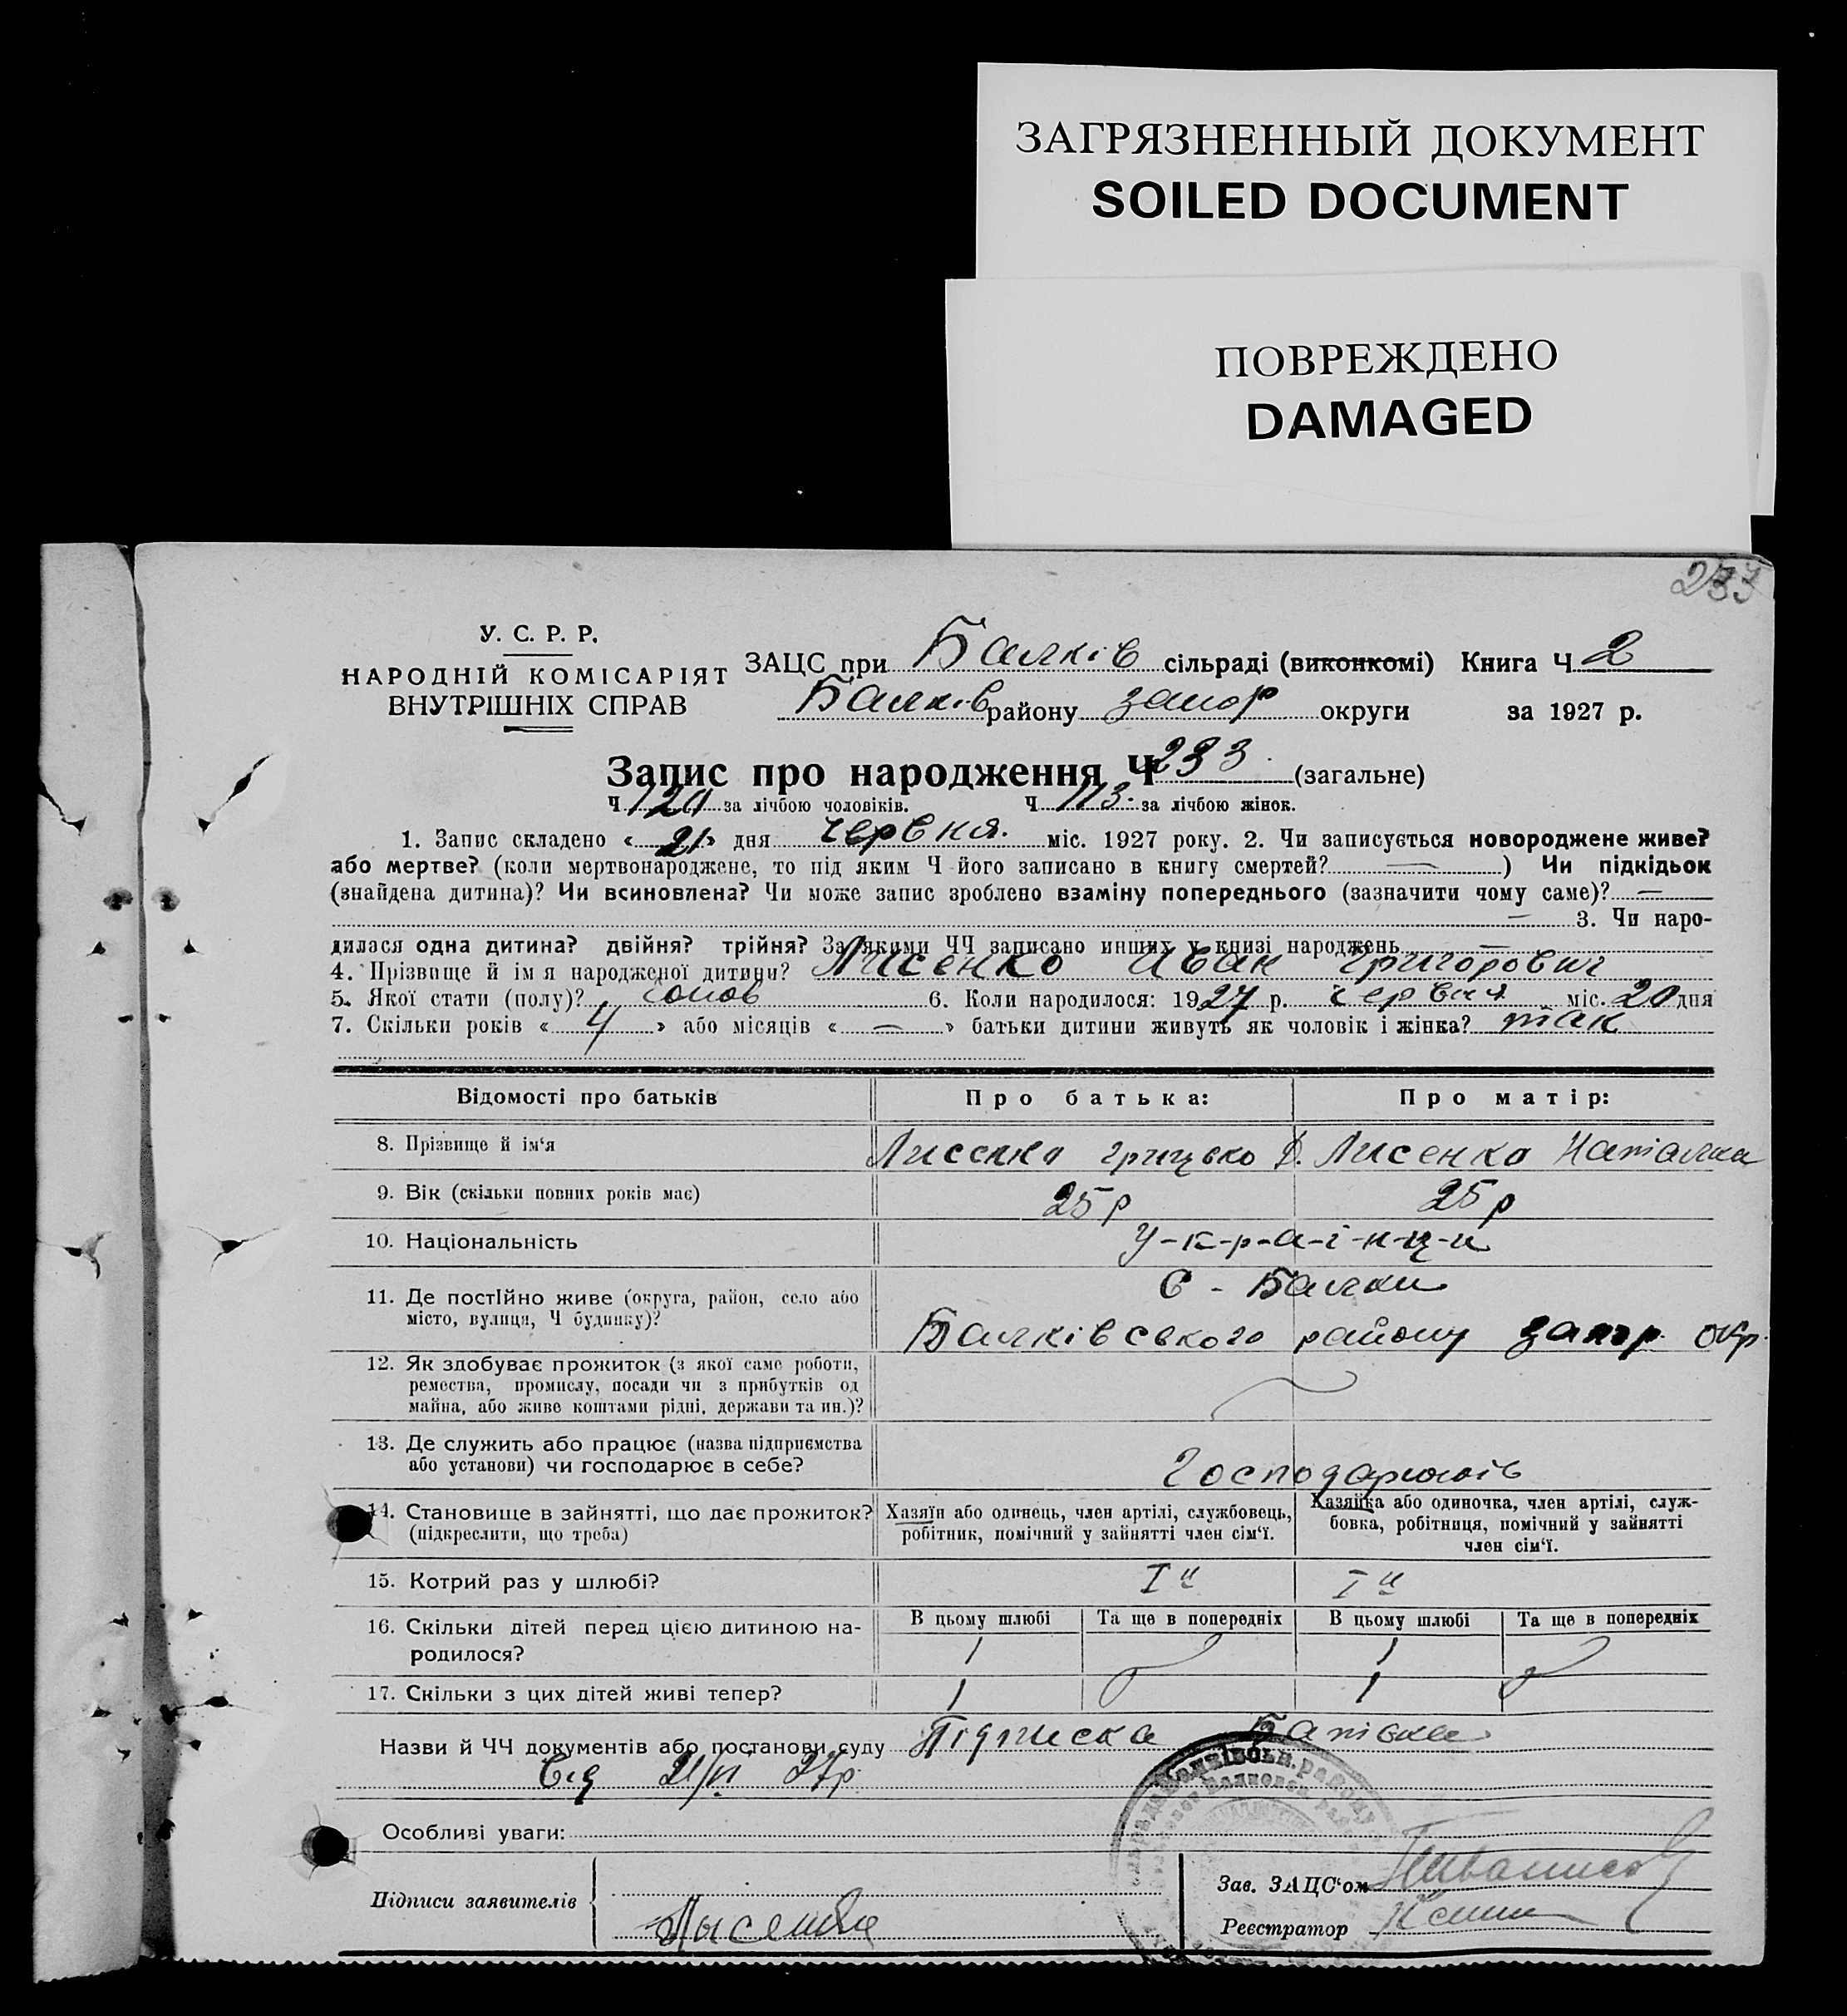 ЗАГРЯЗНЕННЫЙ ДОКУМЕНТ
SOILED DOCUMENT
ПОВРЕЖДЕНО
DAMAGED
У. С. Р. Р.
НАРОДНІЙ КОМІСАРІЯТ
ВНУТРІШНІХ СПРАВ
ЗАЦС при Балків сільраді (виконкомі) Книга Ч 2
Балків району запор округи за 1927 р.
Запис про народження Ч 233 (загальне)
Ч 120 за лічбою чоловіків. Ч 113 за лічбою жінок.
1. Запис складено « 21 » дня червня. міс. 1927 року. 2. Чи записується новороджене живе?
або мертве? (коли мертвонароджене, то під яким Ч його записано в книгу смертей? — ) Чи підкідьок
(знайдена дитина)? Чи всиновлена? Чи може запис зроблено взаміну попереднього (зазначити чому саме)? —
— 3. Чи наро-
дилася одна дитина? двійня? трійня? За якими ЧЧ записано инших у книзі народжень —
4. Прізвище й ім я народженої дитини? Лисенко Иван Григорович
5. Якої стати (полу)? 6. Коли народилося: 1927 р. червня міс. 20 дня
7. Скільки років « 4 » або місяців « — » батьки дитини живуть як чоловік і жінка? так
Відомості про батьків Про батька: Про матір:
8. Прізвище й ім'я Лисенко Грицько Д. Лисенко Наталка
9. Вік (скільки повних років має) 25 р 25 р
10. Національність У-к-р-а-ї-н-ц-и
11. Де постійно живе (округа, район, село або С - Балки
місто, вулиця, Ч будинку)? Балківського району запор. окр.
12. Як здобуває прожиток (з якої саме роботи,
ремества, промислу, посади чи з прибутків од
майна, або живе коштами рідні, держави та ин.)?
13. Де служить або працює (назва підприємства
або установи) чи господарює в себе? Господарюють
14. Становище в зайнятті, що дає прожиток? Хазяїн або одинець, член артілі, службовець, Хазяйка або одиночка, член артілі, служ-
(підкреслити, що треба) робітник, помічний у зайнятті член сім'ї. бовка, робітниця, помічний у зайнятті
член сім'ї.
15. Котрий раз у шлюбі? I й I й
16. Скільки дітей перед цією дитиною на- В цьому шлюбі Та ще в попередніх В цьому шлюбі Та ще в попередніх
родилося? 1 1
17. Скільки з цих дітей живі тепер? 1 1
Назви й ЧЧ документів або постанови суду Підписка Батька
Від 21/VI 27р.
Особливі уваги:
Підписи заявителів Лысенко
Зав. ЗАЦС'ом
Реєстратор